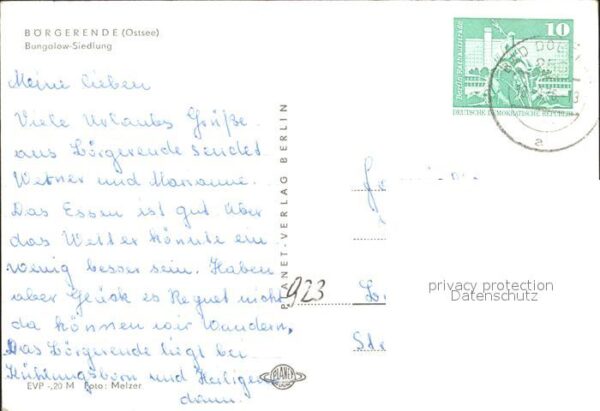 BÖRGERENDE (Ostsee)
Bungalow-Siedlung
Meine lieben
Viele Urlaubs Grüße
aus Börgerende sendet
Werner und Marianne.
Das Essen ist gut aber
das Wetter könnte ein
wenig besser sein. Haben
aber Glück es Regnet nicht
da können wir Wandern,
Das Börgerende liegt bei
Kühlungsborn und Heiligen
damm.
EVP -,20 M Foto: Melzer
PLANET-VERLAG BERLIN
PLANET
10
Berlin, Rathausstraße
DEUTSCHE DEMOKRATISCHE REPUBLIK
BAD DOB
a
923
privacy protection
Datenschutz